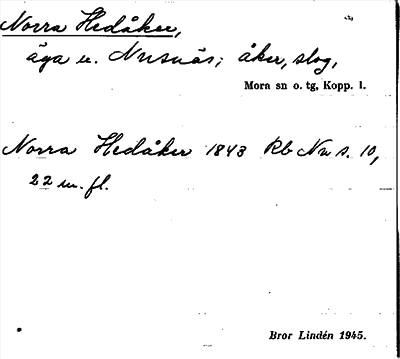 Norra Hedåker,
äga u. Nusnäs; åker, slog,
Mora sn o. tg, Kopp. l.
Norra Hedåker 1843 Rb Nu s. 10,
22 m. fl.
Bror Lindén 1945.